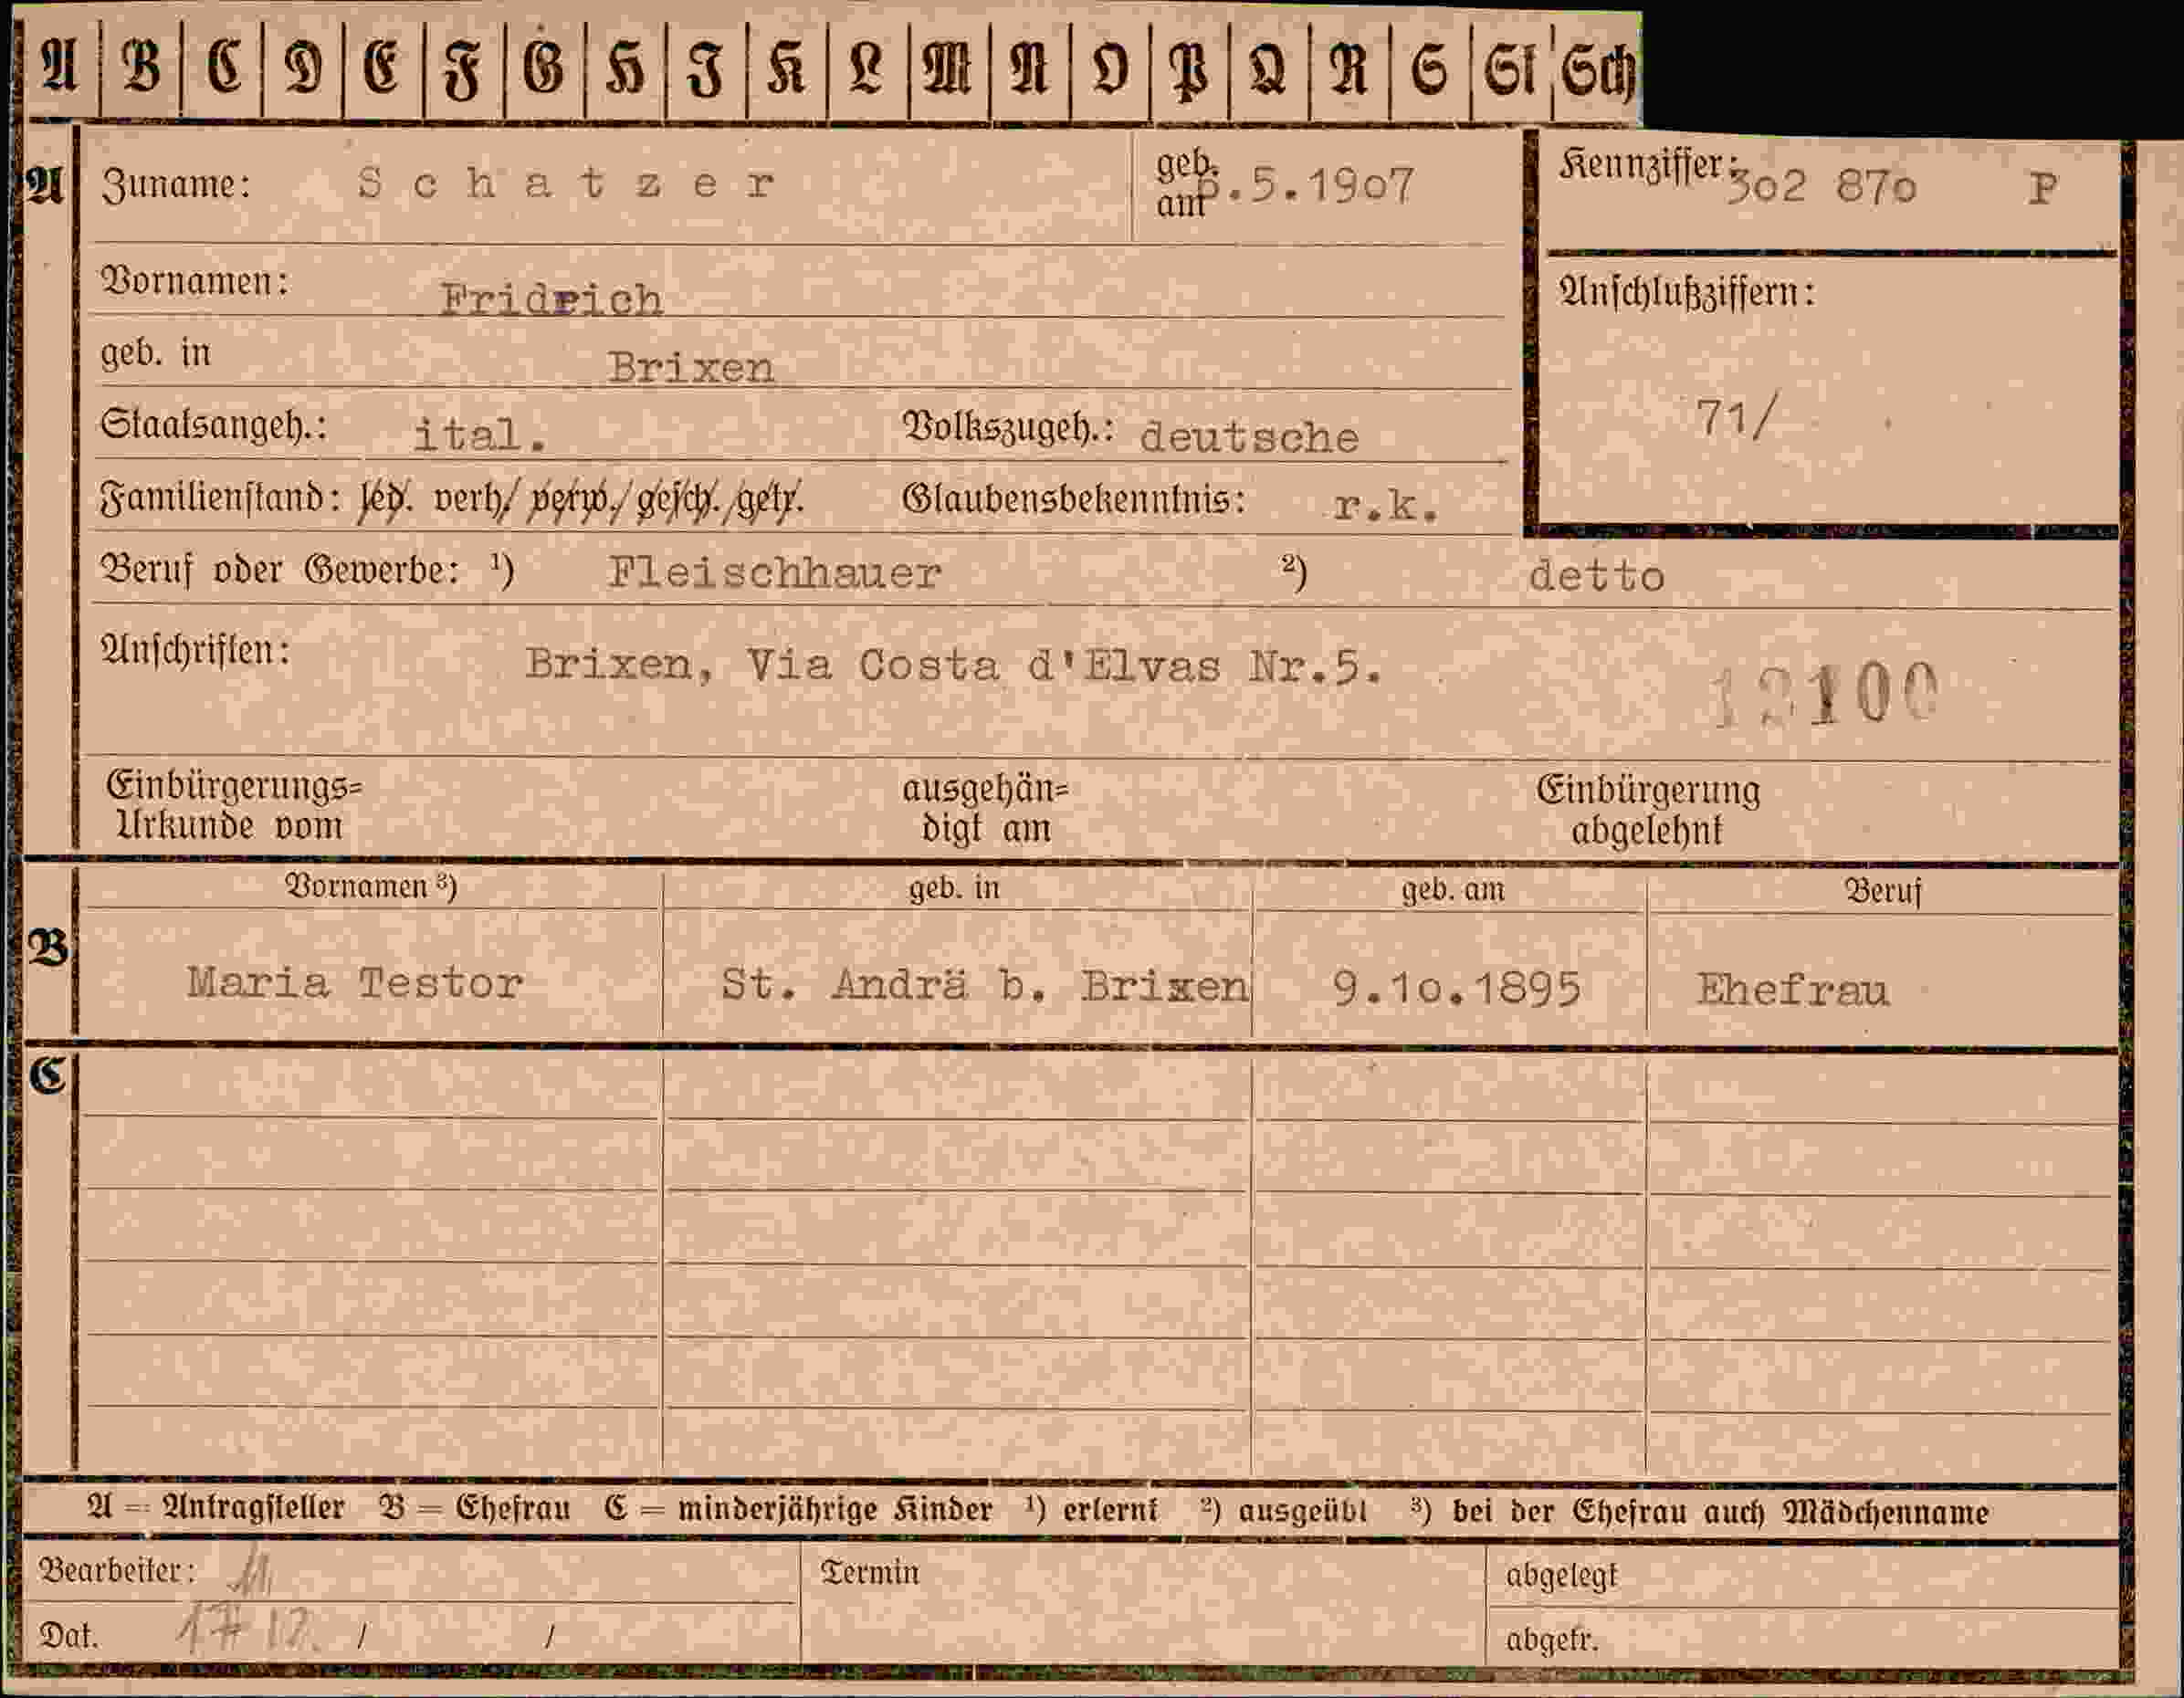 A B C D E F G H I K L M N O P Q R S St Sch
A Zuname: Schatzer geb. am .5.1907 Kennziffer: 302 870 P
Vornamen: Fridrich
Anschlußziffern:
geb. in Brixen
Staatsangeh.: ital. Volkszugeh.: deutsche
71/
Familienstand: led. verh/ verw./ gesch./ getr. Glaubensbekenntnis: r.k.
Beruf oder Gewerbe: ¹) Fleischhauer ²) detto
Anschriften: Brixen, Via Costa d'Elvas Nr.5.
Einbürgerungs= ausgehän= Einbürgerung
Urkunde vom digt am abgelehnt
Vornamen ³) geb. in geb. am Beruf
B Maria Testor St. Andrä b. Brixen 9.10.1895 Ehefrau
C
A = Antragsteller B = Ehefrau C = minderjährige Kinder ¹) erlernt ²) ausgeübt ³) bei der Ehefrau auch Mädchenname
Bearbeiter: Termin abgelegt
Dat. / / abgetr.